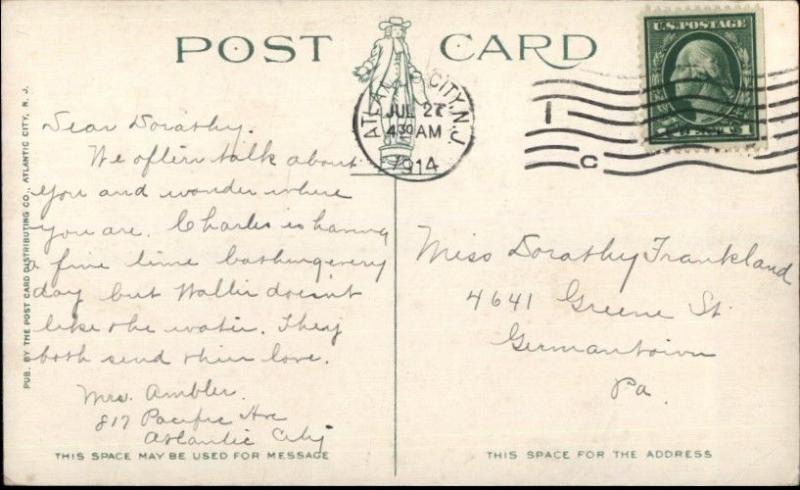 POST CARD
U.S. POSTAGE
1
ATLANTIC CITY, N.J.
JUL 27
4 30 AM
1914
1
C
Dear Dorathy.
We oftern talk about
you and wonder where
you are. Charles is having
a fine time bathing every
day but Wallie doesn't
like the water. They
both send their love.
Mrs. Ambler.
817 Pacific Ave
Atlantic City
Miss Dorathy Frankland
4641 Greene St.
Germantown
Pa.
PUB. BY THE POST CARD DISTRIBUTING CO., ATLANTIC CITY, N. J.
THIS SPACE MAY BE USED FOR MESSAGE
THIS SPACE FOR THE ADDRESS